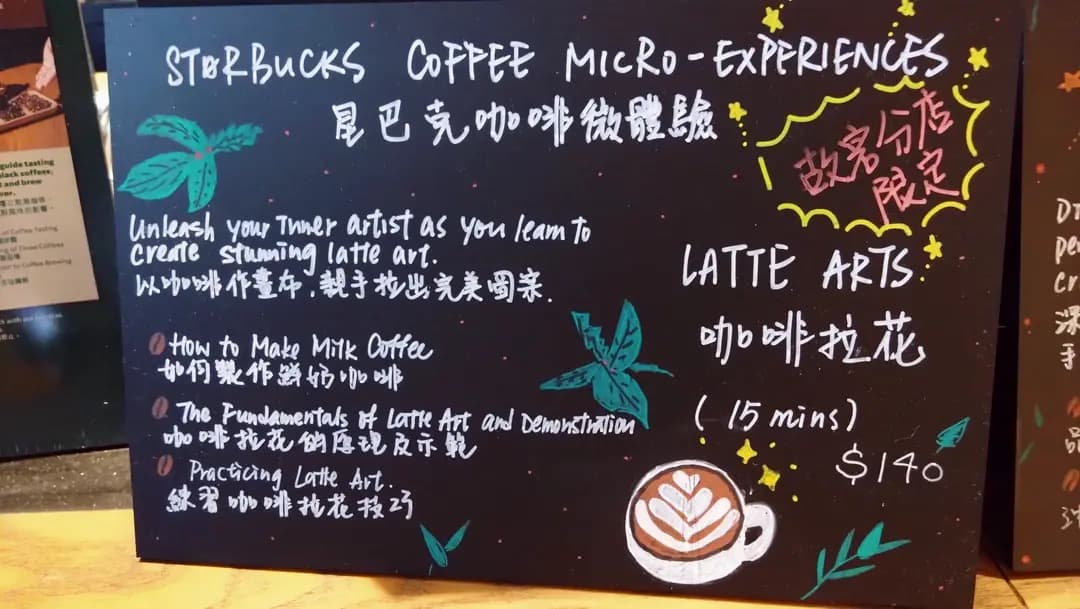 guide tasting
black coffees,
and brew
of Coffee Tasting
of Three Coffees
to Coffee Brewing
STARBUCKS COFFEE MICRO-EXPERIENCES
星巴克咖啡微體驗
故宮分店
限定
Unleash your Inner artist as you learn to
create stunning latte art.
以咖啡作畫布，親手拉出完美圖案.
How to Make Milk Coffee
如何製作鮮奶咖啡
The Fundamentals of Latte Art and Demonstration
咖啡拉花的原理及示範
Practicing Latte Art.
練習咖啡拉花技巧
LATTE ARTS
咖啡拉花
(15 mins)
$140
深
手
品